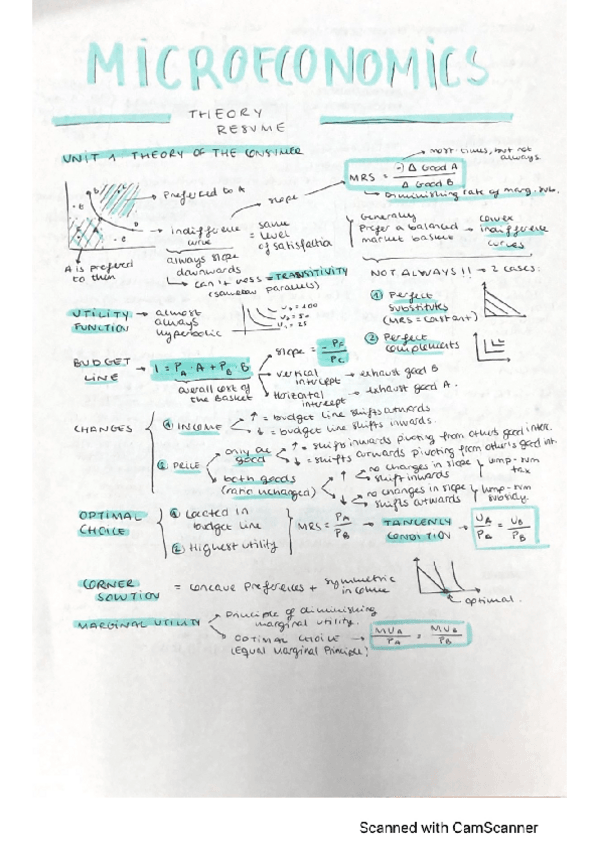 MICROECONOMICS
THEORY
RESUME
UNIT 1 THEORY OF THE CONSUMER
most times, but not always.
MRS = (-) Δ Good A / Δ Good B
Diminishing rate of marg. sub.
slope
Preferred to A
Indifference curve = same level of satisfaction
always slope downwards
can't cross = TRANSITIVITY
A is preferred to them
Generally
Prefer a balanced market basket → convex indifference curves
NOT ALWAYS!! → 2 cases:
① Perfect substitutes
(MRS = constant)
② Perfect complements
UTILITY FUNCTION → almost always hyperbolic
U3 = 100
U2 = 50
U1 = 25
BUDGET LINE → I = PA · A + PB · B
overall cost of the basket
slope =
vertical intercept → exhaust good B
Horizontal intercept → exhaust good A.
CHANGES
① INCOME
↑ = budget line shifts outwards
↓ = budget line shifts inwards.
② PRICE
only one good
↑ = shift inwards pivoting from other's good inter.
↓ = shifts outwards pivoting from other's good int.
both goods
(ratio unchanged)
↑ no changes in slope
shift inwards
lump-sum tax
↓ no changes in slope
shifts outwards
lump-sum subsidy.
OPTIMAL CHOICE
① Located in budget line
② Highest utility
MRS = PA / PB → TANGENCY CONDITION → UA / PA = UB / PB
CORNER SOLUTION = concave preferences + symmetric income
optimal.
MARGINAL UTILITY
Principle of diminishing marginal utility.
OPTIMAL CHOICE → MUA / PA = MUB / PB
(Equal Marginal Principle)
Scanned with CamScanner